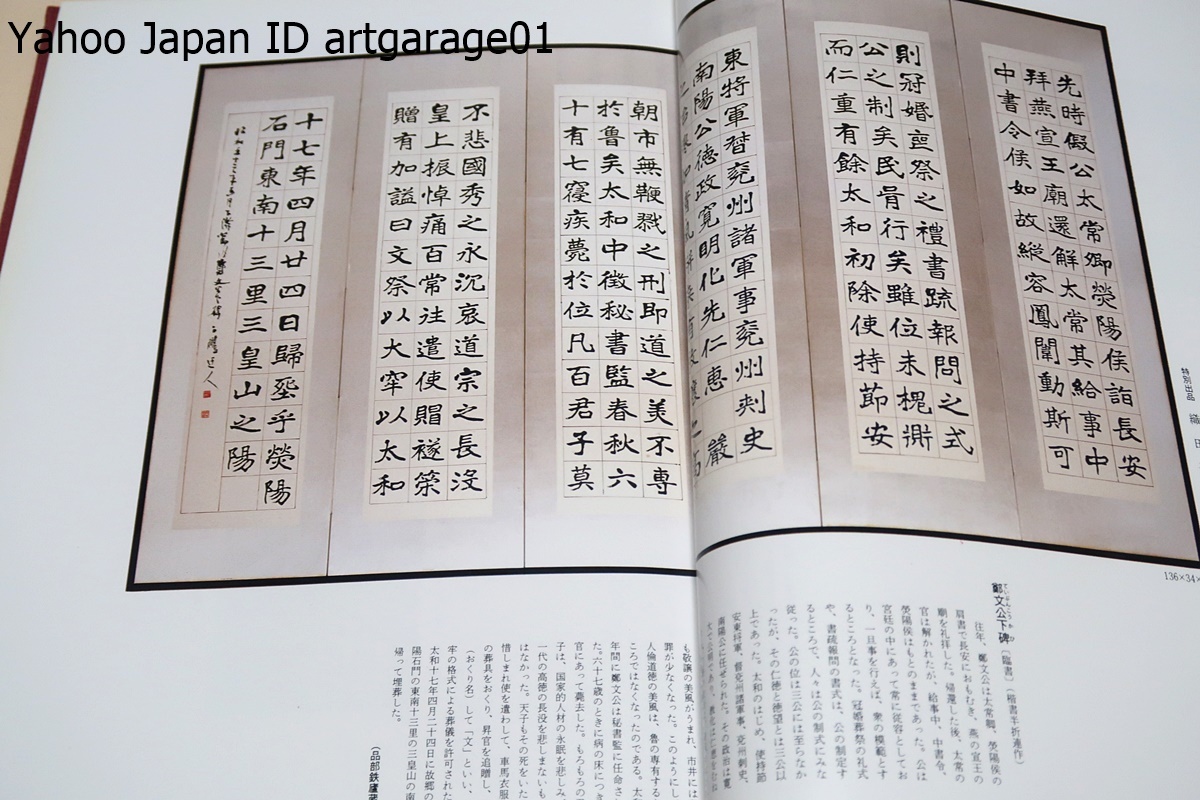 Yahoo Japan ID artgarage01
先時假公太常卿熒陽侯詣長安
拜燕宣王廟還解太常其給事中
中書令侯如故縱容鳳闈動斯可
則冠婚喪祭之禮書疏報問之式
公之制矣民胥行矣雖位未槐衡
而仁重有餘太和初除使持節安
東將軍督兖州諸軍事兖州刺史
南陽公德政寬明化先仁惠嚴
朝市無鞭戮之刑即道之美不專
於魯矣太和中徵秘書監春秋六
十有七寑疾薨於位凡百君子莫
不悲國秀之永沉哀道宗之長沒
皇上振悼痛百常往遣使賵襚策
贈有加謚曰文祭以大牢以太和
十七年四月廿四日歸塟乎熒陽
石門東南十三里三皇山之陽
特別出品
136×34×
鄭文公下碑(臨書)(楷書半折連作)
往年、鄭文公は太常卿、熒陽侯の
肩書で長安におもむき、燕の宣王の
廟を礼拝した。帰還した後、太常の
官は解かれたが、給事中、中書令、
熒陽侯はもとのままであった。公は
宮廷の中にあって常に従容としてお
り、一旦事を行えば、衆の模範とす
るところとなった。冠婚葬祭の礼式
や、書疏報問の書式は、公の制定す
るところで、人々は公の制式にみな
従った。公の位は三公には至らなか
ったが、その仁徳と徳望とは三公以
上であった。太和のはじめ、使持節
安東将軍、督兗州諸軍事、兗州刺史、
南陽公に任せられた。その政治は寛
も敬譲の美風がうまれ、市井には
罪が少なくなった。このようにし
人倫道徳の美風は、魯の専有する
ころではなくなったのである。太
年間に鄭文公は秘書監に任命さ
た。六十七歳のときに病の床につき
官にあって薨去した。もろもろの
子は、国家的人材の永眠を悲しみ、
一代の高徳の長没を悲しまないも
はなかった。天子もその死をいた
惜しまれ使を遣わして、車馬衣服
の葬具をおくり、昇官を追贈し、
(おくり名)して「文」といい、
牢の格式による葬儀を許可された
太和十七年四月二十四日に故郷の
陽石門の東南十三里の三皇山の南
帰って埋葬した。